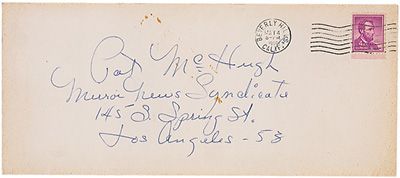 Pat McHugh
Mirror News Syndicate
145 S. Spring St.
Los Angeles - 53
BEVERLY HILLS
14
CALIF.